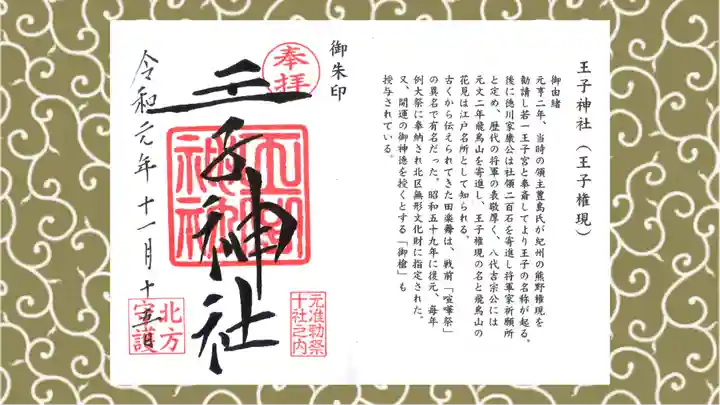 王子神社（王子権現）
御由緒
元亨二年、当時の領主豊島氏が紀州の熊野権現を
勧請し若一王子宮と奉斎してより王子の名称が起る。
後に徳川家康公は社領二百石を寄進し将軍家祈願所
と定め、歴代の将軍の表敬厚く、八代吉宗公には
元文二年飛鳥山を寄進し、王子権現の名と飛鳥山の
花見は江戸名所として知られる。
古くから伝えられてきた田楽舞は、戦前「喧嘩祭」
の異名で有名だった。昭和五十九年に復元、毎年
例大祭に奉納され北区無形文化財に指定された。
又、開運の御神徳を授くとする「御槍」も
授与されている。
御朱印
奉拝
王子神社
王子神社
元准勅祭
十社之内
令和元年十一月十五日
北方
守護